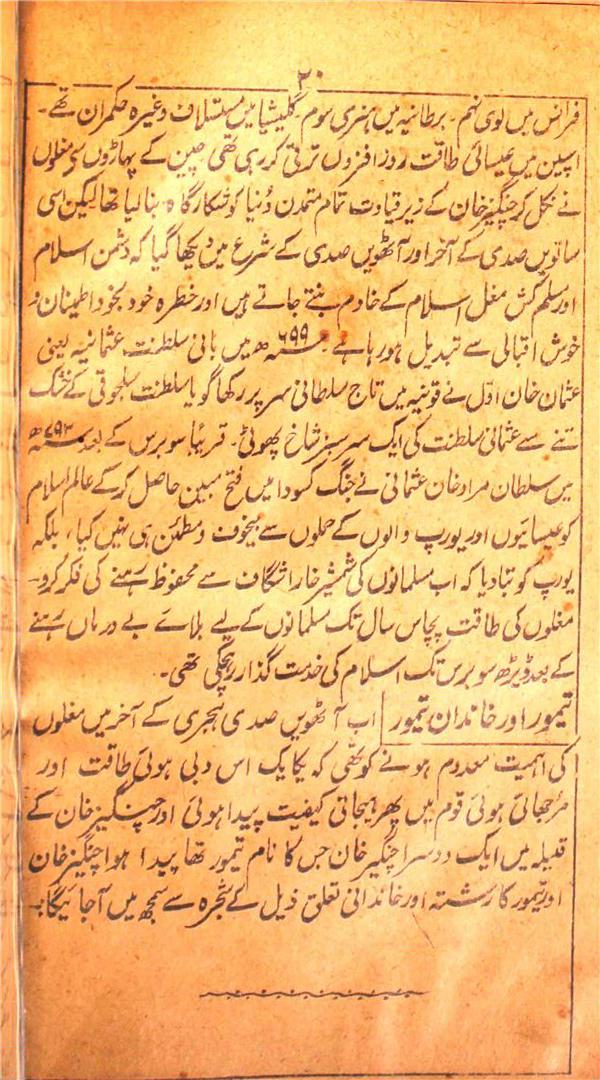 ۲۰
فرانس میں لوی نہم۔ برطانیہ میں ہنری سوم۔ گلیشیا میں مستلاف وغیرہ حکمران تھے۔
اسپین میں عیسائی طاقت روز افزوں ترقی کر رہی تھی چین کے پہاڑوں سی مغلوں
نے نکل کر چنگیز خان کے زیر قیادت تمام متمدن دُنیا کو شکارگاہ بنا لیا تھا لیکن اسی
ساتویں صدی کے آخر اور آٹھویں صدی کے شرع میں دیکھا گیا کہ دشمن اسلام
اور مسلم کش مغل اسلام کے خادم بنتے جاتے ہیں اور خطرہ خود بخود اطینان و
خوش اقبالی سے تبدیل ہو رہا ہے۔ ۶۹۹ھ میں بانی سلطنت عثمانیہ یعنی
عثمان خان اوّل نے قونیہ میں تاج سلطانی سر پر رکھا گویا سلطنت سلجوقی کے خشک
تنے سے عثمانی سلطنت کی ایک سرسبز شاخ پھوٹی۔ قریباً سو برس کے بعد ۷۹۳ھ
میں سلطان مراد خان عثمانی نے جنگ کسودا میں فتح مبین حاصل کر کے عالم اسلام
کو عیسائیوں اور یورپ والوں کے حملوں سے بیخوف و مطمئن ہی نہیں کیا، بلکہ
یورپ کو بتا دیا کہ اب مسلمانوں کی شمشیر خارا شگاف سے محفوظ رہنے کی فکر کرو۔
مغلوں کی طاقت پچاس سال تک مسلمانوں کے لیے بلاے بے درماں رہنے
کے بعد ڈیڑھ سو برس تک اسلام کی خدمت گذار رہ چکی تھی۔
تیمور اور خاندان تیمور اب آٹھویں صدی ہجری کے آخر میں مغلوں
کی اہمیت معدوم ہونے کو تھی کہ یکایک اس دبی ہوئی طاقت اور
مرجھائی ہوئی قوم میں پھر ہیجانی کیفیت پیدا ہوئی اور چنگیز خان کے
قبیلہ میں ایک دوسرا چنگیز خان جس کا نام تیمور تھا پیدا ہوا چنگیز خان
اور تیمور کا رشتہ اور خاندانی تعلق ذیل کے شجرہ سے سمجھ میں آجائیگا:۔